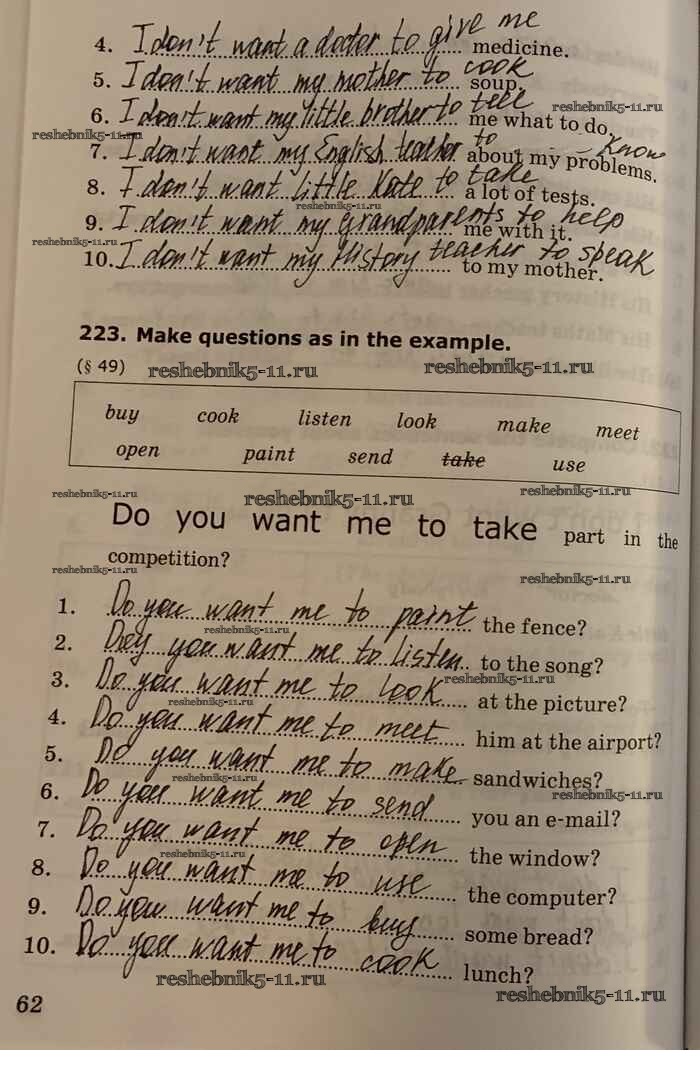 4. I don't want a doctor to give me medicine.
5. I don't want my mother to cook soup.
6. I don't want my little brother to tell me what to do.
reshebnik5-11.ru
reshebnik5-11.ru
7. I don't want my English teacher to know about my problems.
8. I don't want little Kate to take a lot of tests.
reshebnik5-11.ru
9. I don't want my Grandparents to help me with it.
reshebnik5-11.ru
10. I don't want my History teacher to speak to my mother.
223. Make questions as in the example.
(§ 49)
reshebnik5-11.ru
reshebnik5-11.ru
buy cook listen look make meet
open paint send take use
reshebnik5-11.ru
reshebnik5-11.ru
reshebnik5-11.ru
Do you want me to take part in the
competition?
reshebnik5-11.ru
reshebnik5-11.ru
1. Do you want me to paint the fence?
reshebnik5-11.ru
2. Doy you want me to listen to the song?
3. Do you want me to look at the picture?
reshebnik5-11.ru
reshebnik5-11.ru
4. Do you want me to meet him at the airport?
5. Do you want me to make sandwiches?
reshebnik5-11.ru
reshebnik5-11.ru
6. Do you want me to send you an e-mail?
7. Do you want me to open the window?
reshebnik5-11.ru
8. Do you want me to use the computer?
9. Do you want me to buy some bread?
10. Do you want me to cook lunch?
reshebnik5-11.ru
reshebnik5-11.ru
62